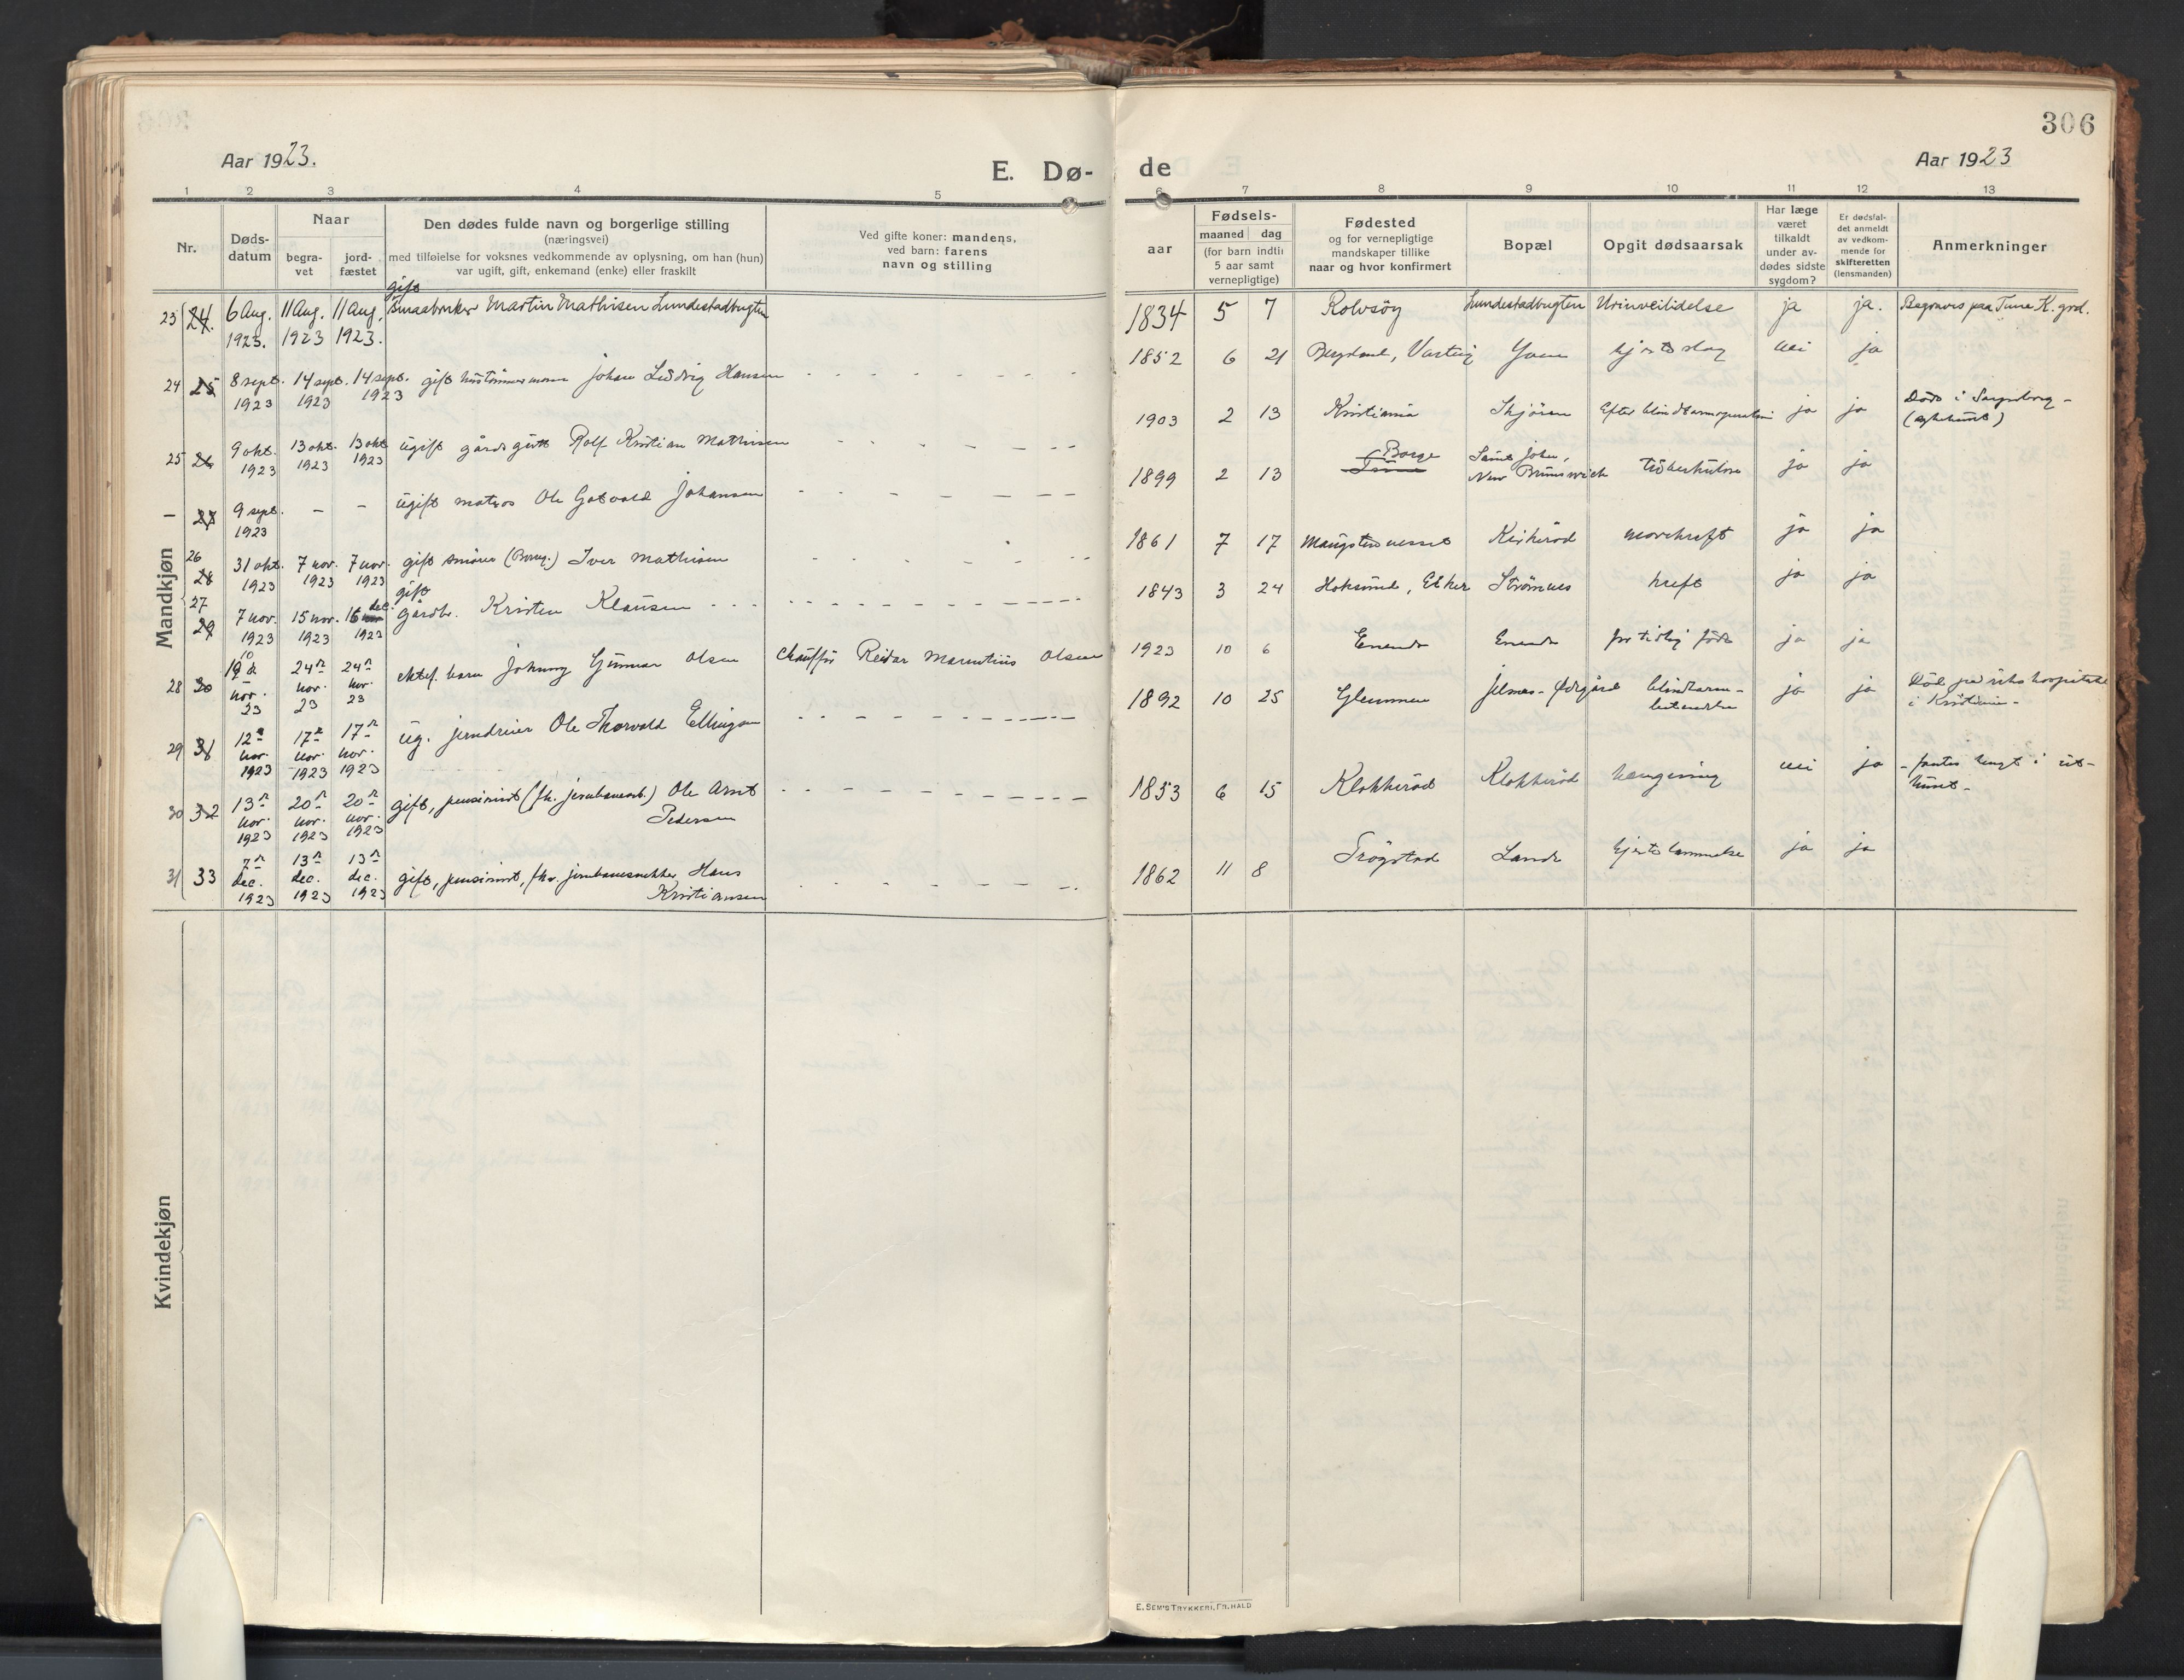 306
Aar 1923.
E. Dø-
de
Aar 1923
1 2 3 4 5 6 7 8 9 10 11 12 13
Nr.
Døds-
datum
Naar
begra-
vet
jord-
fæstet
Den dødes fulde navn og borgerlige stilling
(næringsvei)
med tilføielse for voksnes vedkommende av oplysning, om han (hun)
var ugift, gift, enkemand (enke) eller fraskilt
Ved gifte koner: mandens,
ved barn: farens
navn og stilling
aar
Fødsels-
maaned dag
(for barn indtil
5 aar samt
vernepligtige)
Fødested
og for vernepligtige
mandskaper tillike
naar og hvor konfirmert
Bopæl
Opgit dødsaarsak
Har læge
været
tilkaldt
under av-
dødes sidste
sygdom?
Er dødsfal-
det anmeldt
av vedkom-
mende for
skifteretten
(lensmanden)
Anmerkninger
Mandkjøn
gift
23 24. 6 Aug. 11 Aug. 11 Aug. Smaabruker Martin Mathisen Lundestadbugten 1834 5 7 Rolvsöy Lundestadbugten Urinveilidelse ja ja. Begraves paa Tune K. grd.
1923. 1923 1923.
24 25 8 sept. 14 sept. 14 sept. gift hustømmermann Johan Ludvig Hansen 1852 6 21 Bergdal, Varteig hjerteslag nei ja
1923 1923 1923
25 26 9 okt. 13 okt. 13 okt. ugift gårdsgutt Rolf Kristian Mathisen 1903 2 13 Kristiania Skjören Efter blindtarmoperation ja ja Döde i Sarpsborg -
1923 1923 1923 (sykehuset)
- 27 9 sept. - - ugift matros Ole Gotvald Johansen 1899 2 13 Borge Tune Saint John, tuberkulose ja ja
1923 New Brunswick
26 28 31 okt. 7 nov. 7 nov. gift smører (Borreg.) Iver Mathisen 1861 7 17 Kirkeröd marvkreft ja ja
1923 1923 1923
gift
27 29 7 nov. 15 nov. 16 nov. dec. gårdbr. Kristen Klausen 1843 3 24 Hoksund, Eiker Strömnes kreft ja ja
1923 1923 1923
28 30 19 10 nov. 23 24 nov. 23 24 nov. 23 ektef. barn Johnny Gunnar Olsen Chauffør Reidar Marentius Olsen 1923 10 6 Enende Enende for tidlig født ja ja
29 31 12 nov. 1923 17 nov. 1923 17 nov. 1923 ug. jerndreier Ole Thorvald Ellingsen 1892 10 25 Glemmen Jelmes-Ødegård blindtarm- ja ja Död på rikshospitalet
betendelse i Kristiania -
30 32 13 nov. 1923 20 nov. 1923 20 nov. 1923 gift, pensionist (fh. jernbanearb.) Ole Arnt 1853 6 15 Klokkeröd Klokkeröd hængning nei ja - fantes hengt i ut-
Pedersen huset -
31 33 7 dec. 1923 13 dec. 1923 13 dec. 1923 gift, pensionist, fhv. jernbanesnekker Hans 1862 11 8 Trögstad Lande hjertelammelse ja ja
Kristiansen
Kvindekjøn
E. SEM'S TRYKKERI, FR.HALD